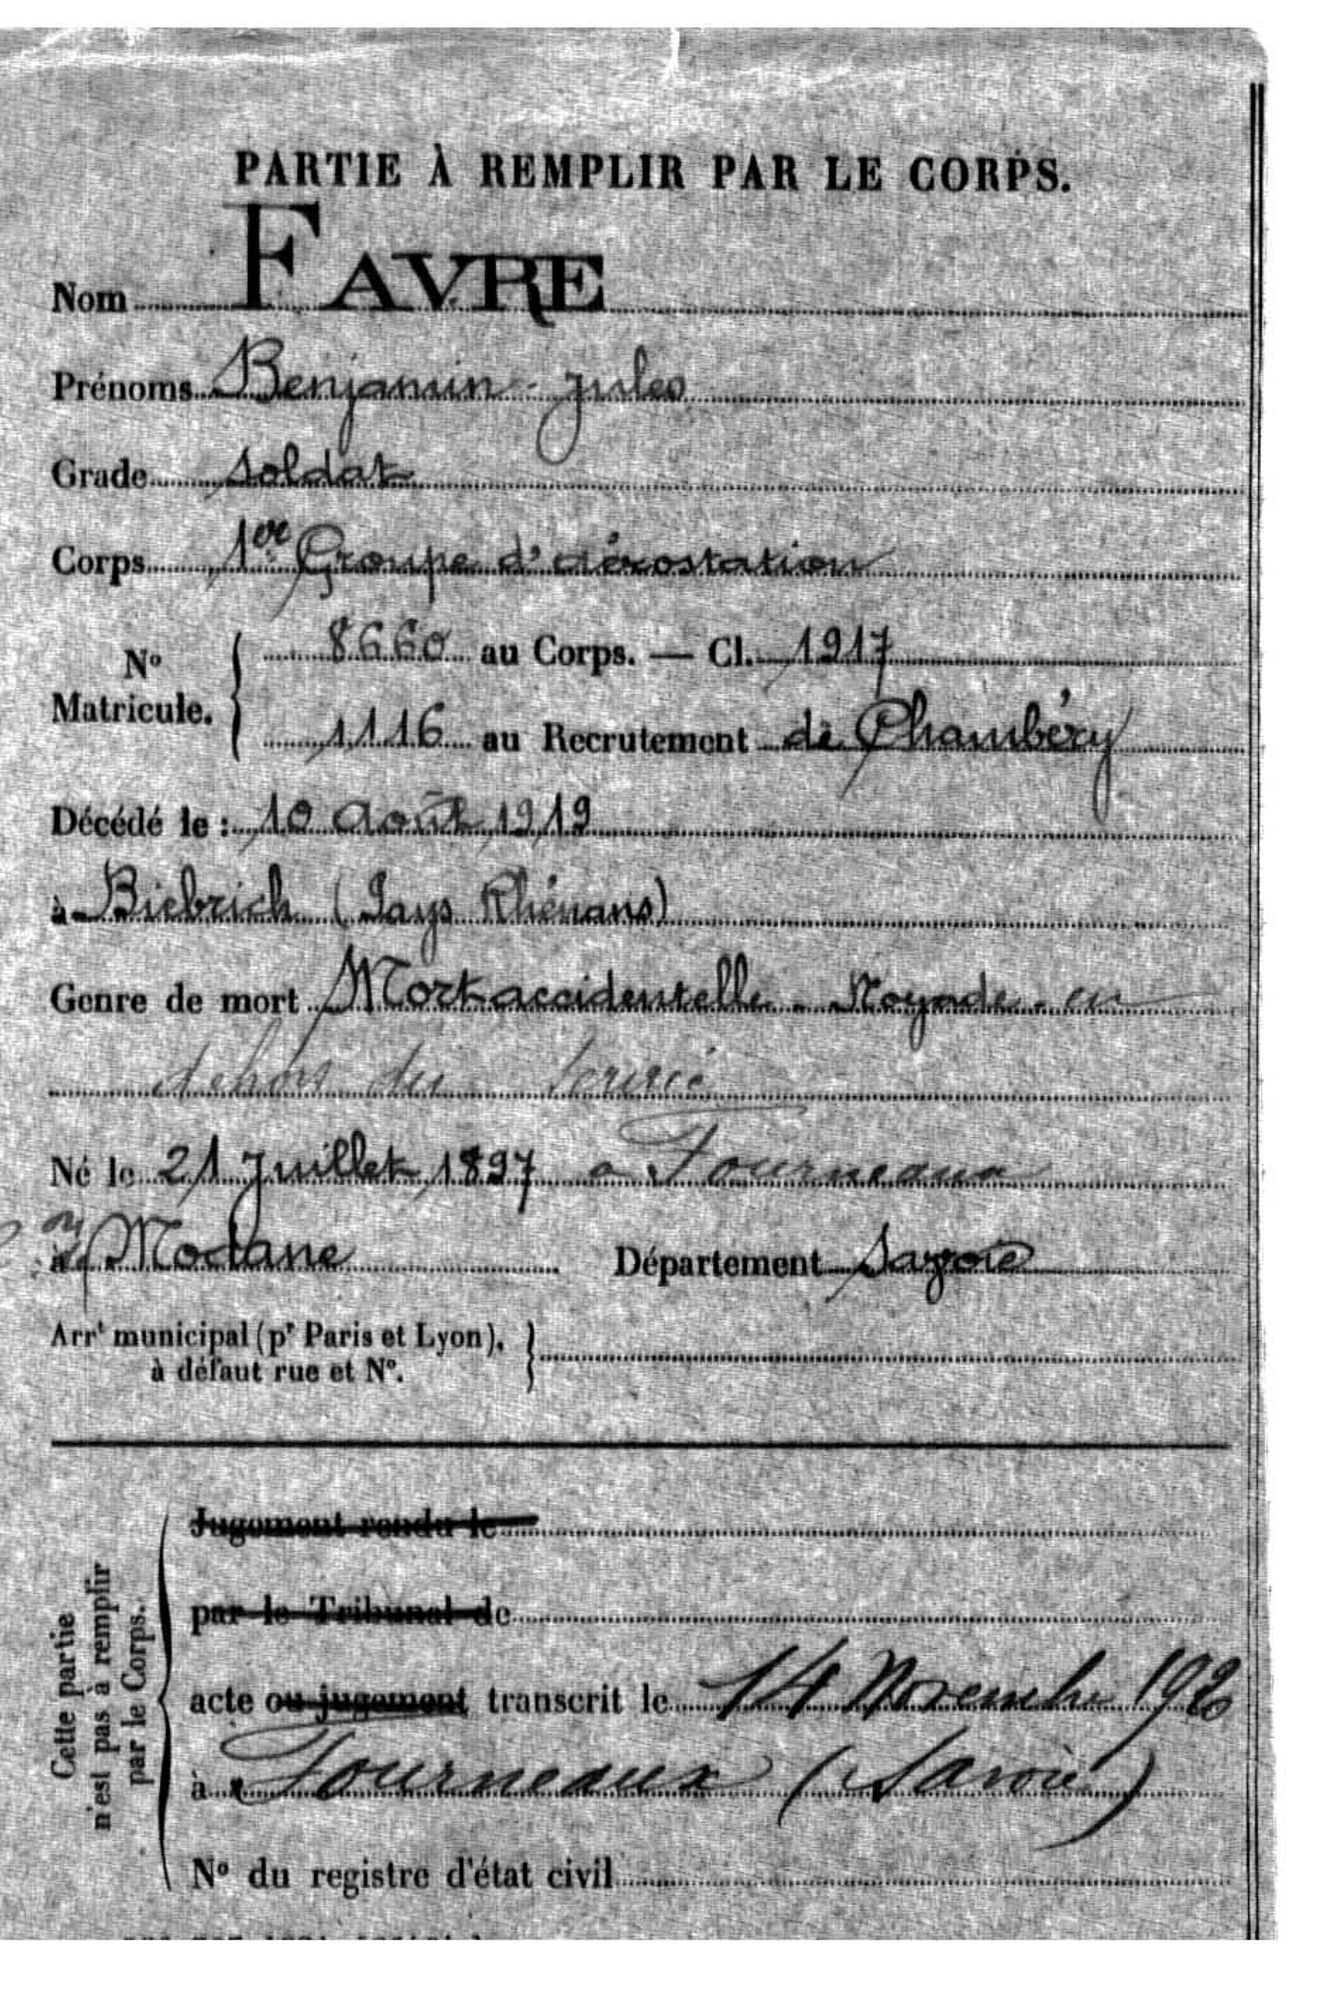 PARTIE À REMPLIR PAR LE CORPS.
Nom FAVRE
Prénoms Benjamin - Jules
Grade soldat
Corps 1er Groupe d'aérostation
No Matricule. { 8660 au Corps. — Cl. 1917
1116 au Recrutement de Chambéry
Décédé le : 10 août 1919
à Biebrich (Pays Rhénans)
Genre de mort Mort accidentelle - Noyade - en
dehors du service
Né le 21 Juillet 1897 a Fourneaux
à Modane Département Savoie
Arrt municipal (pr Paris et Lyon), }
à défaut rue et No.
Cette partie
n'est pas à remplir
par le Corps.
Jugement rendu le
par le Tribunal de
acte ou jugement transcrit le 14 Novembre 1920
à Fourneaux (Savoie)
No du registre d'état civil